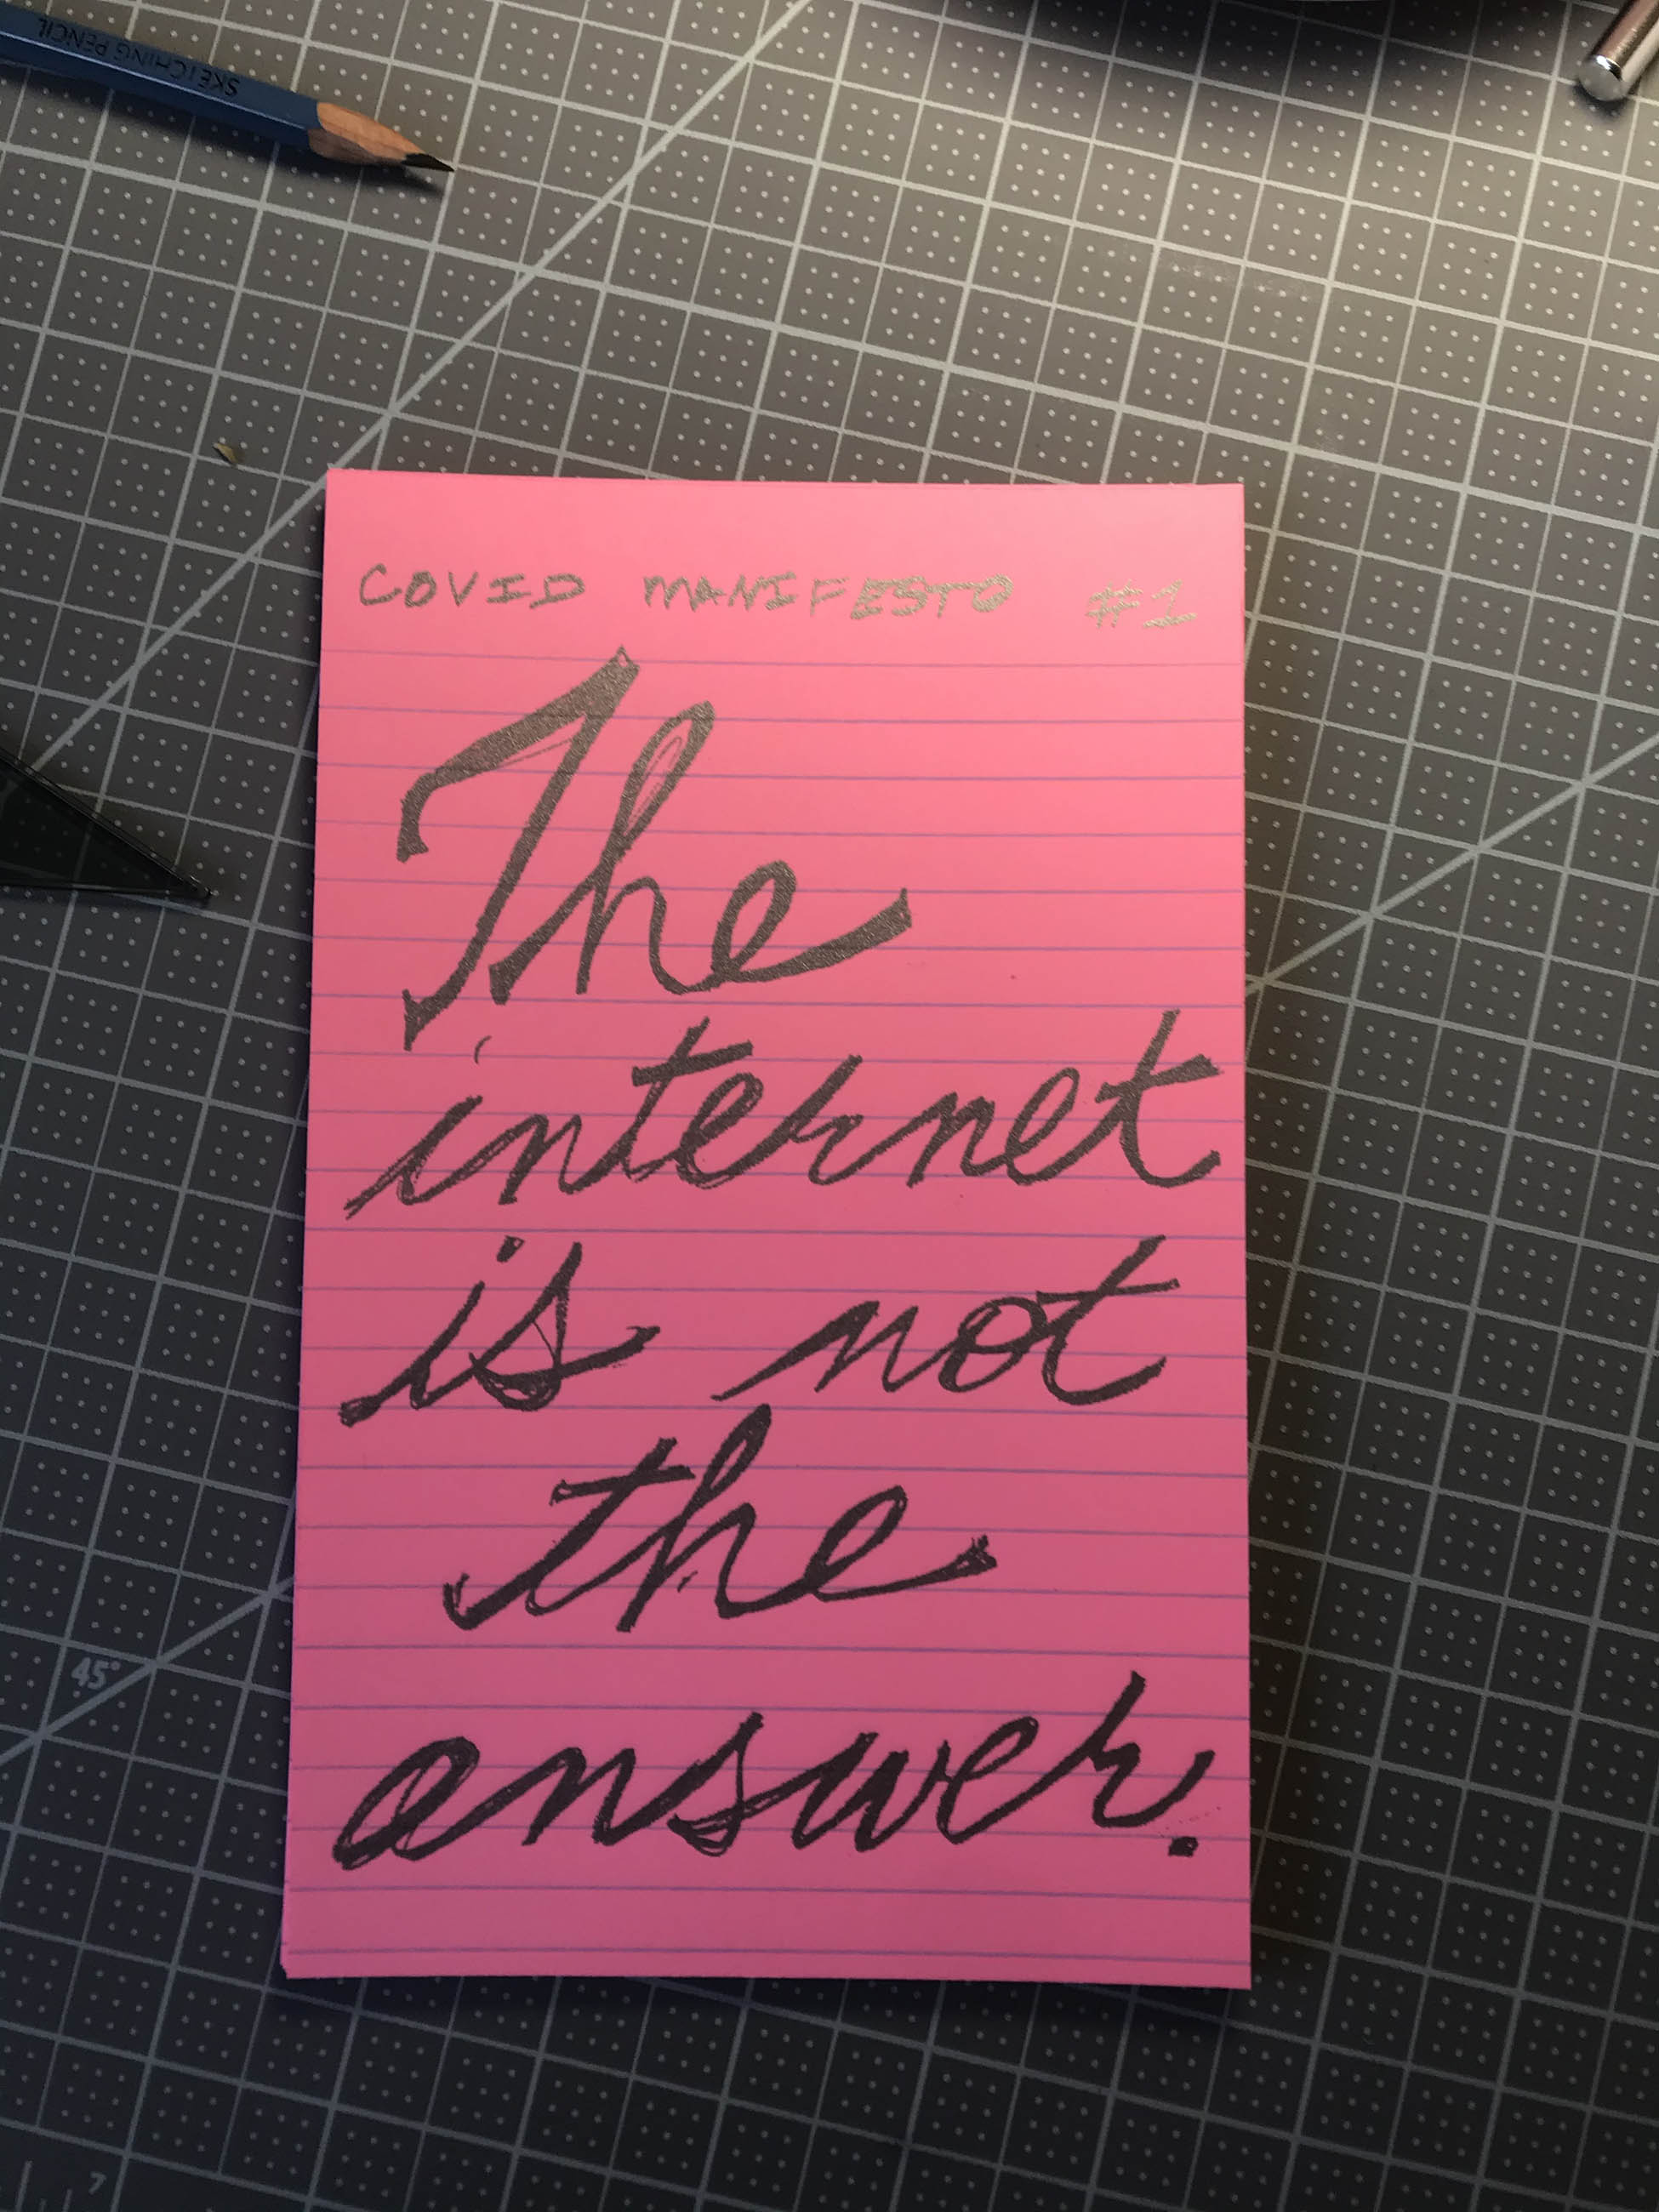 SKETCHING PENCIL
COVID MANIFESTO #1
The
internet
is not
the
answer.
45°
7